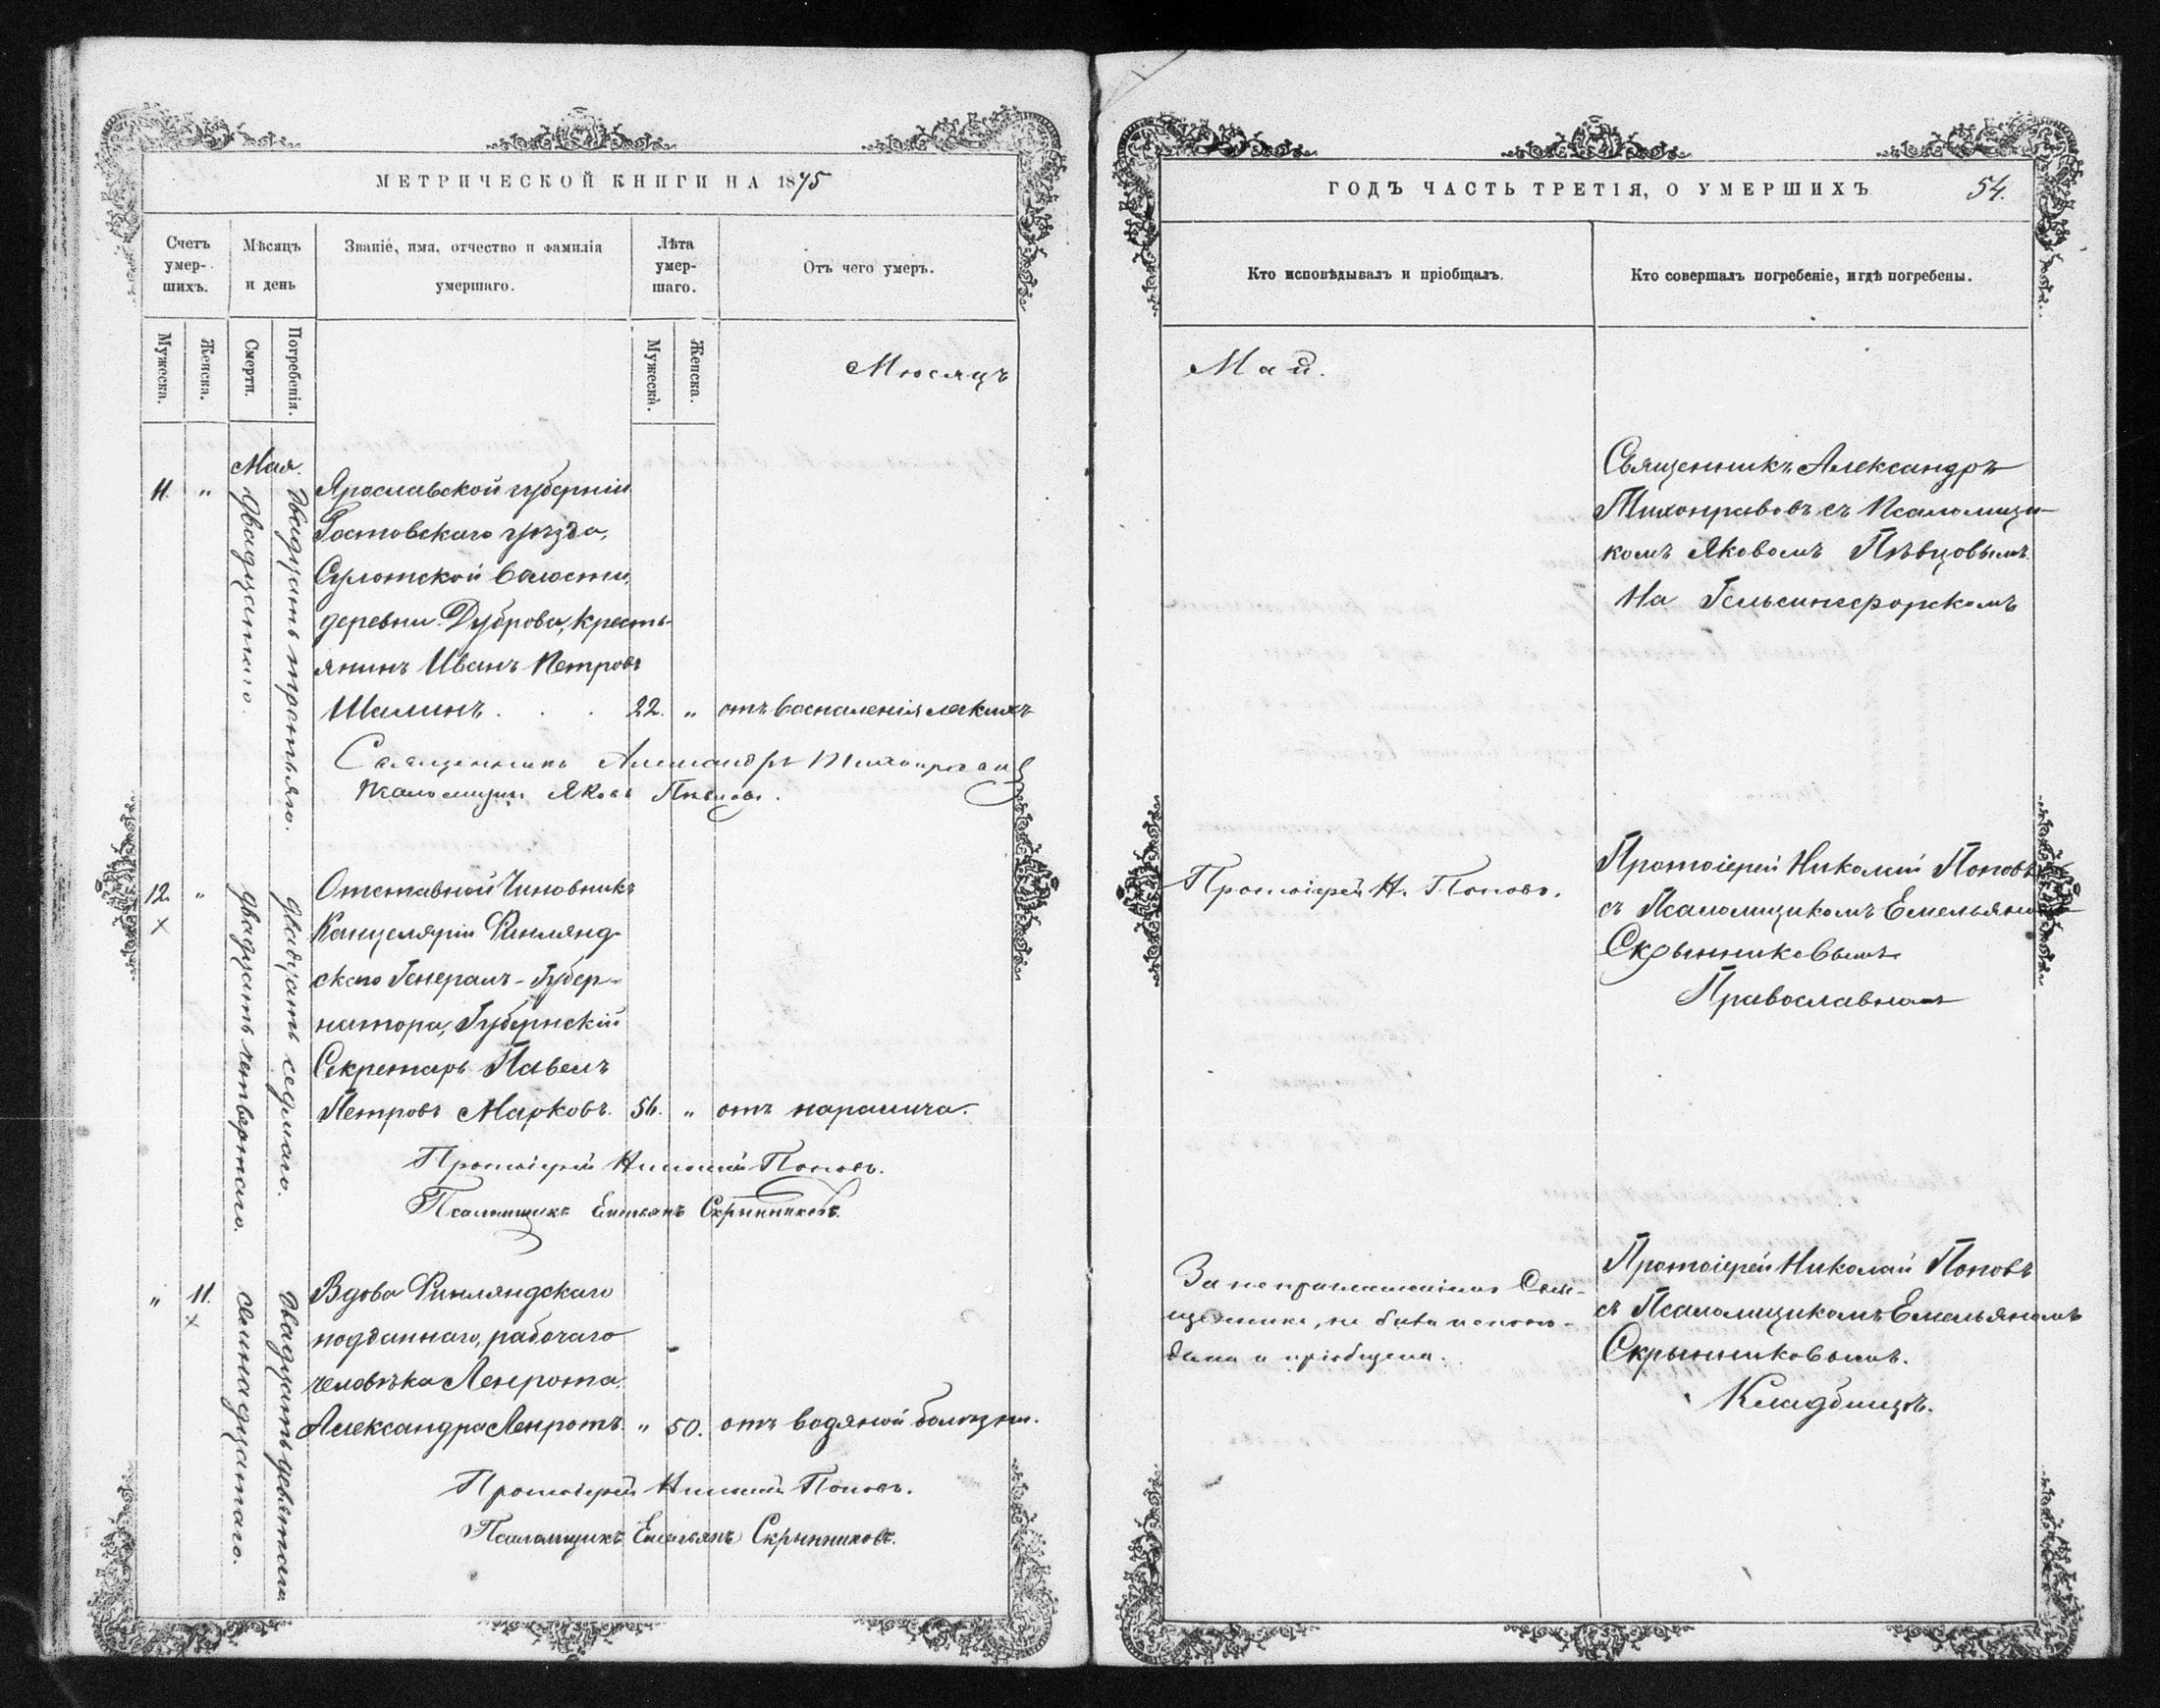 МЕТРИЧЕСКОЙ КНИГИ НА 1875
Счетъ умер-шихъ.
Мѣсяцъ и день
Званіе, имя, отчество и фамилія умершаго.
Лѣта умер-шаго.
Отъ чего умеръ.
Мужеска.
Женска.
Смерти.
Погребенія.
Мужеска.
Женска.
Мѣсяцъ
Мая.
11. "
двадцатаго.
двадцать третьяго.
Ярославской губерніи
Ростовскаго уѣзда,
Сулотской волости,
деревни Дуброва, кресть-
янинъ Иванъ Петровъ
Шалинъ . . . 22. " отъ воспаленія легкихъ
Священникъ Александръ Тихонравовъ
Псаломщикъ Яковъ Пѣвцовъ.
12. "
×
двадцать четвертаго.
двадцать седьмаго.
Отставной Чиновникъ
Канцеляріи Финлянд-
скаго Генералъ-Губер-
натора, Губернскій
Секретарь Павелъ
Петровъ Марковъ. 56. " отъ паралича.
Протоіерей Николай Поповъ.
Псаломщикъ Емельянъ Скрынниковъ.
" 11.
×
семнадцатаго.
двадцать девятаго.
Вдова Финляндскаго
подданнаго, рабочаго
человѣка Ленрота
Александра Ленротъ. " 50. отъ водяной болѣзни.
Протоіерей Николай Поповъ.
Псаломщикъ Емельянъ Скрынниковъ.
ГОДЪ ЧАСТЬ ТРЕТІЯ, О УМЕРШИХЪ 54.
Кто исповѣдывалъ и пріобщалъ.
Кто совершалъ погребеніе, и гдѣ погребены.
Май.
Священникъ Александръ
Тихонравовъ съ Псаломщи-
комъ Яковомъ Пѣвцовымъ.
На Гельсингфорскомъ
Протоіерей Н. Поповъ.
Протоіерей Николай Поповъ
съ Псаломщикомъ Емельяномъ
Скрынниковымъ
Православномъ
За неприглашеніемъ Свя-
щенника, не была исповѣ-
дана и пріобщена.
Протоіерей Николай Поповъ
съ Псаломщикомъ Емельяномъ
Скрынниковымъ.
Кладбищѣ.